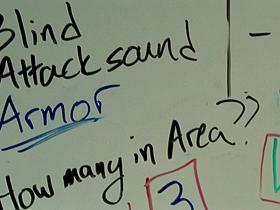 Blind
Attack sound
Armor
How many in Area??
3